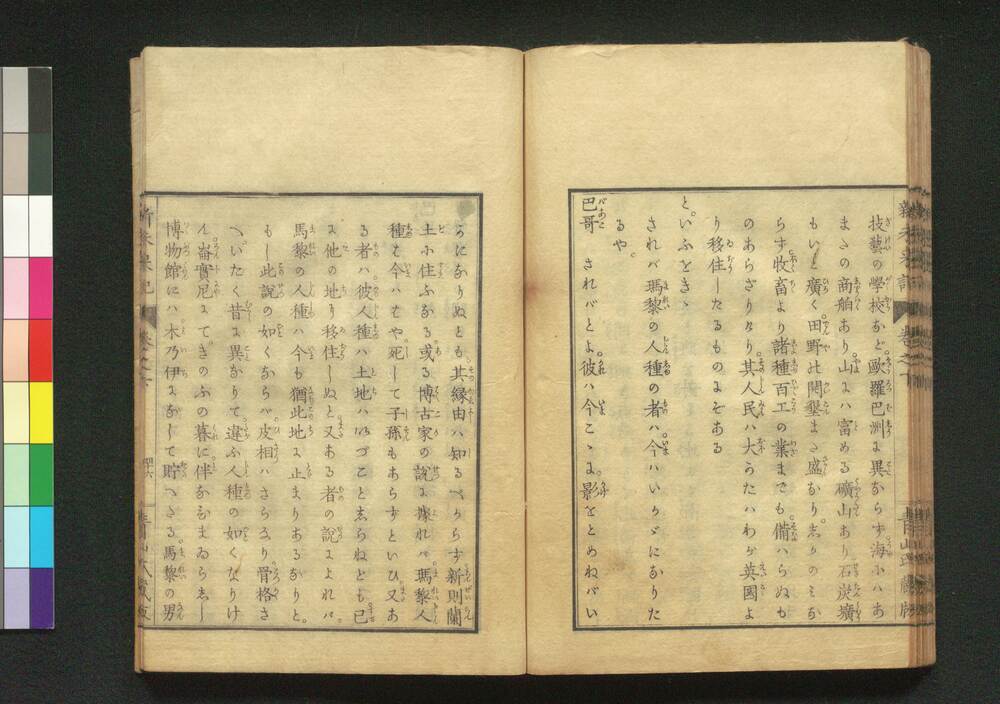 技藝の學校など。歐羅巴洲に異ならず海にハあ
またの商舶あり。山にハ富める礦山あり石炭壙
もいと廣く。田野の開墾また盛なり。しかのミな
らず牧畜より諸種百工の業までも。備ハらぬも
のあらざりけり。其人民ハ大うたハわが英國よ
り移住したるものまである
と。いふをきゝ
されバ瑪黎の人種の者ハ。今ハいかゞになりた
るや。
巴哥 されバとよ。彼ハ今こゝに影をとめねバい
らになりぬとも。其縁由ハ知るべからず新則蘭
土に住ふなる。或る博古家の説に據れバ。瑪黎人
種も今ハはや。死して子孫もあらずといひ。又あ
る者ハ。彼人種ハ土地ハいづこと志らねども已
に他の地に移住しぬと。又ある者の説によれバ。
馬黎の人種ハ今も猶此地に止まりあるなりと。
もし此説の如くならバ。皮相ハさらなり。骨格さ
へいたく昔に異なりて。違ふ人種の如くなりけ
ん。崙實尼にてきのふの暮に。伴なひまゐらせし
博物館にハ木乃伊になして貯へたる。馬黎の男